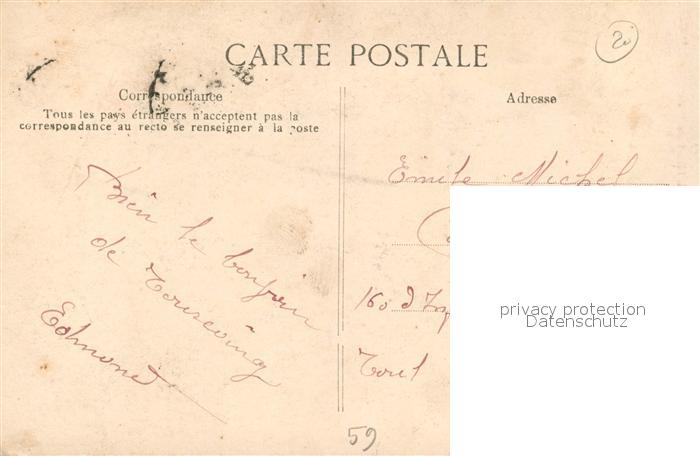 CARTE POSTALE
20
Correspondance
Tous les pays étrangers n'acceptent pas la
correspondance au recto se renseigner à la poste
Adresse
Bien le bonjour
de Tourcoing
Edmond
Emile Michel
160 d'In
Toul
59
privacy protection
Datenschutz